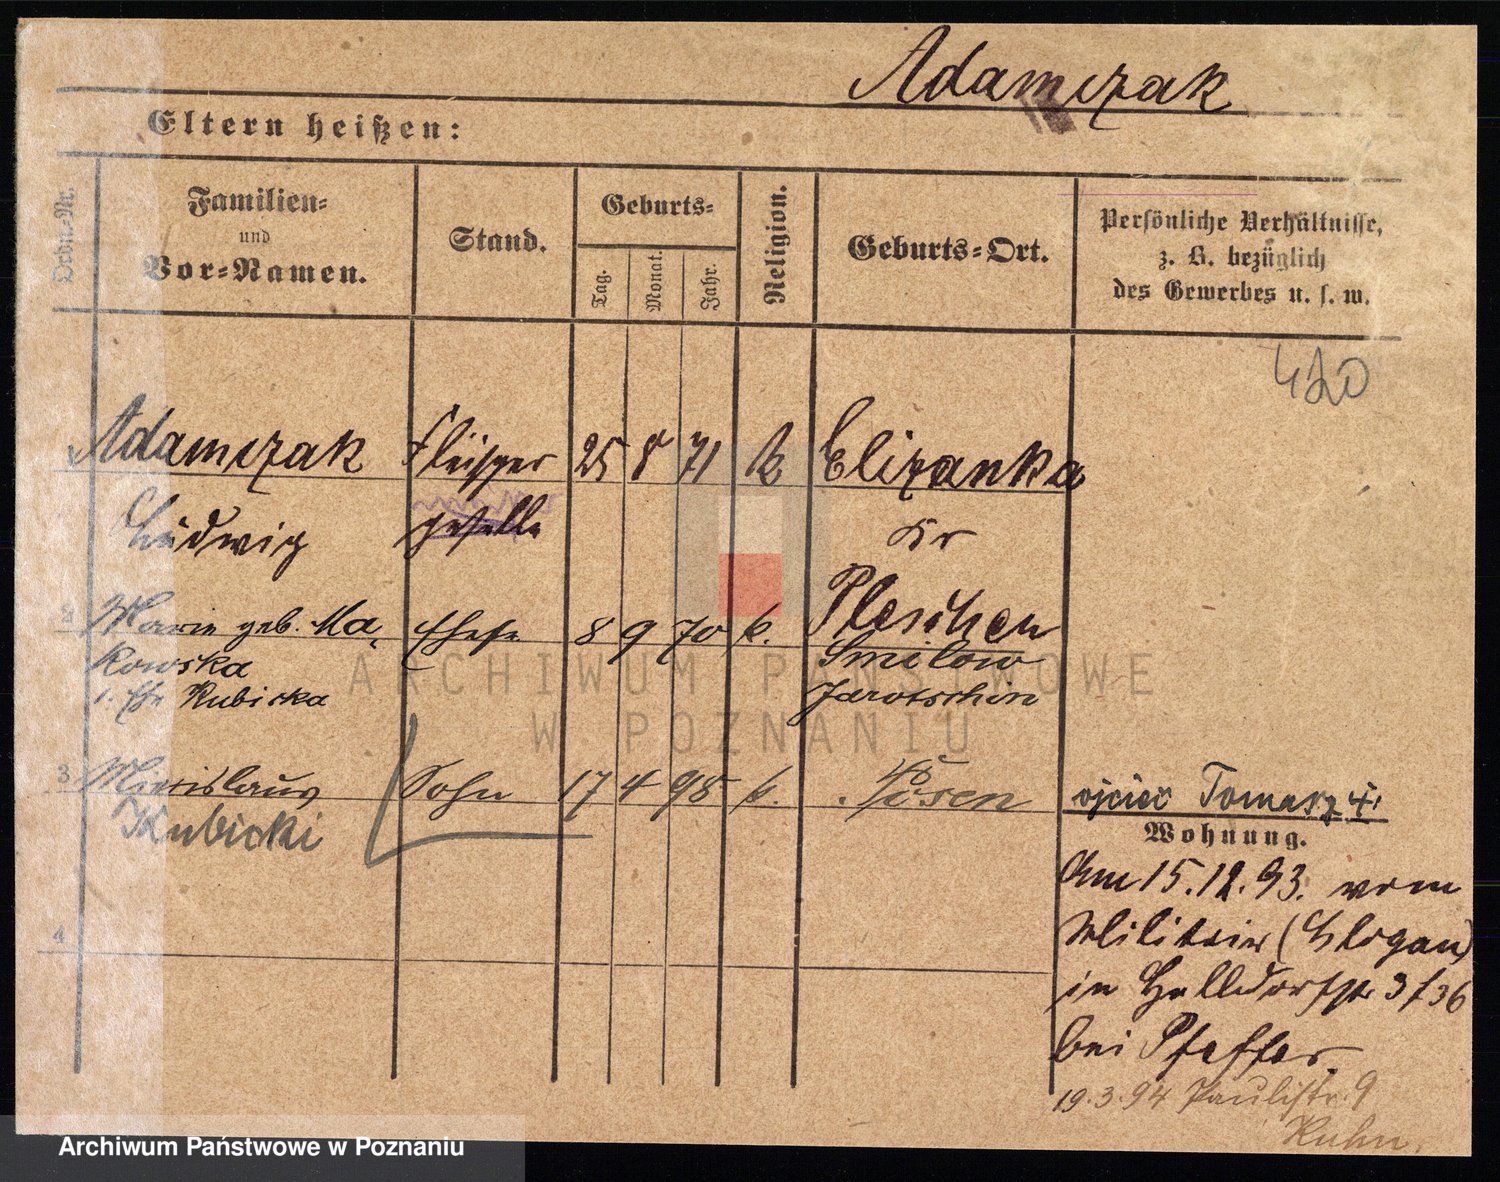 Adamczak
Eltern heißen:
Ordn.-Nr.
Familien-
und
Vor-Namen.
Stand.
Geburts-
Tag.
Monat.
Jahr.
Religion.
Geburts-Ort.
Persönliche Verhältnisse,
z. B. bezüglich
des Gewerbes u. s. w.
420
1 Adamczak Fleischer 25 8 71 k Elizanka
Ludwig geselle Kr
Pleschen
2 Marie geb. Ma- Ehefr 8 9 70 k. Smilow
kowska Jarotschin
1. Ehe Kubicka
3 Miecislaus Sohn 17 4 98 k. Posen
Kubicki
ojciec Tomasz
4
Wohnung.
Am 15.12.93. vom
Militair (Glogau)
in Halldorfstr 3 f 36
bei Pfeffer
19.3.94 Paulistr. 9
Kuhn.
ARCHIWUM PAŃSTWOWE
W POZNANIU
Archiwum Państwowe w Poznaniu